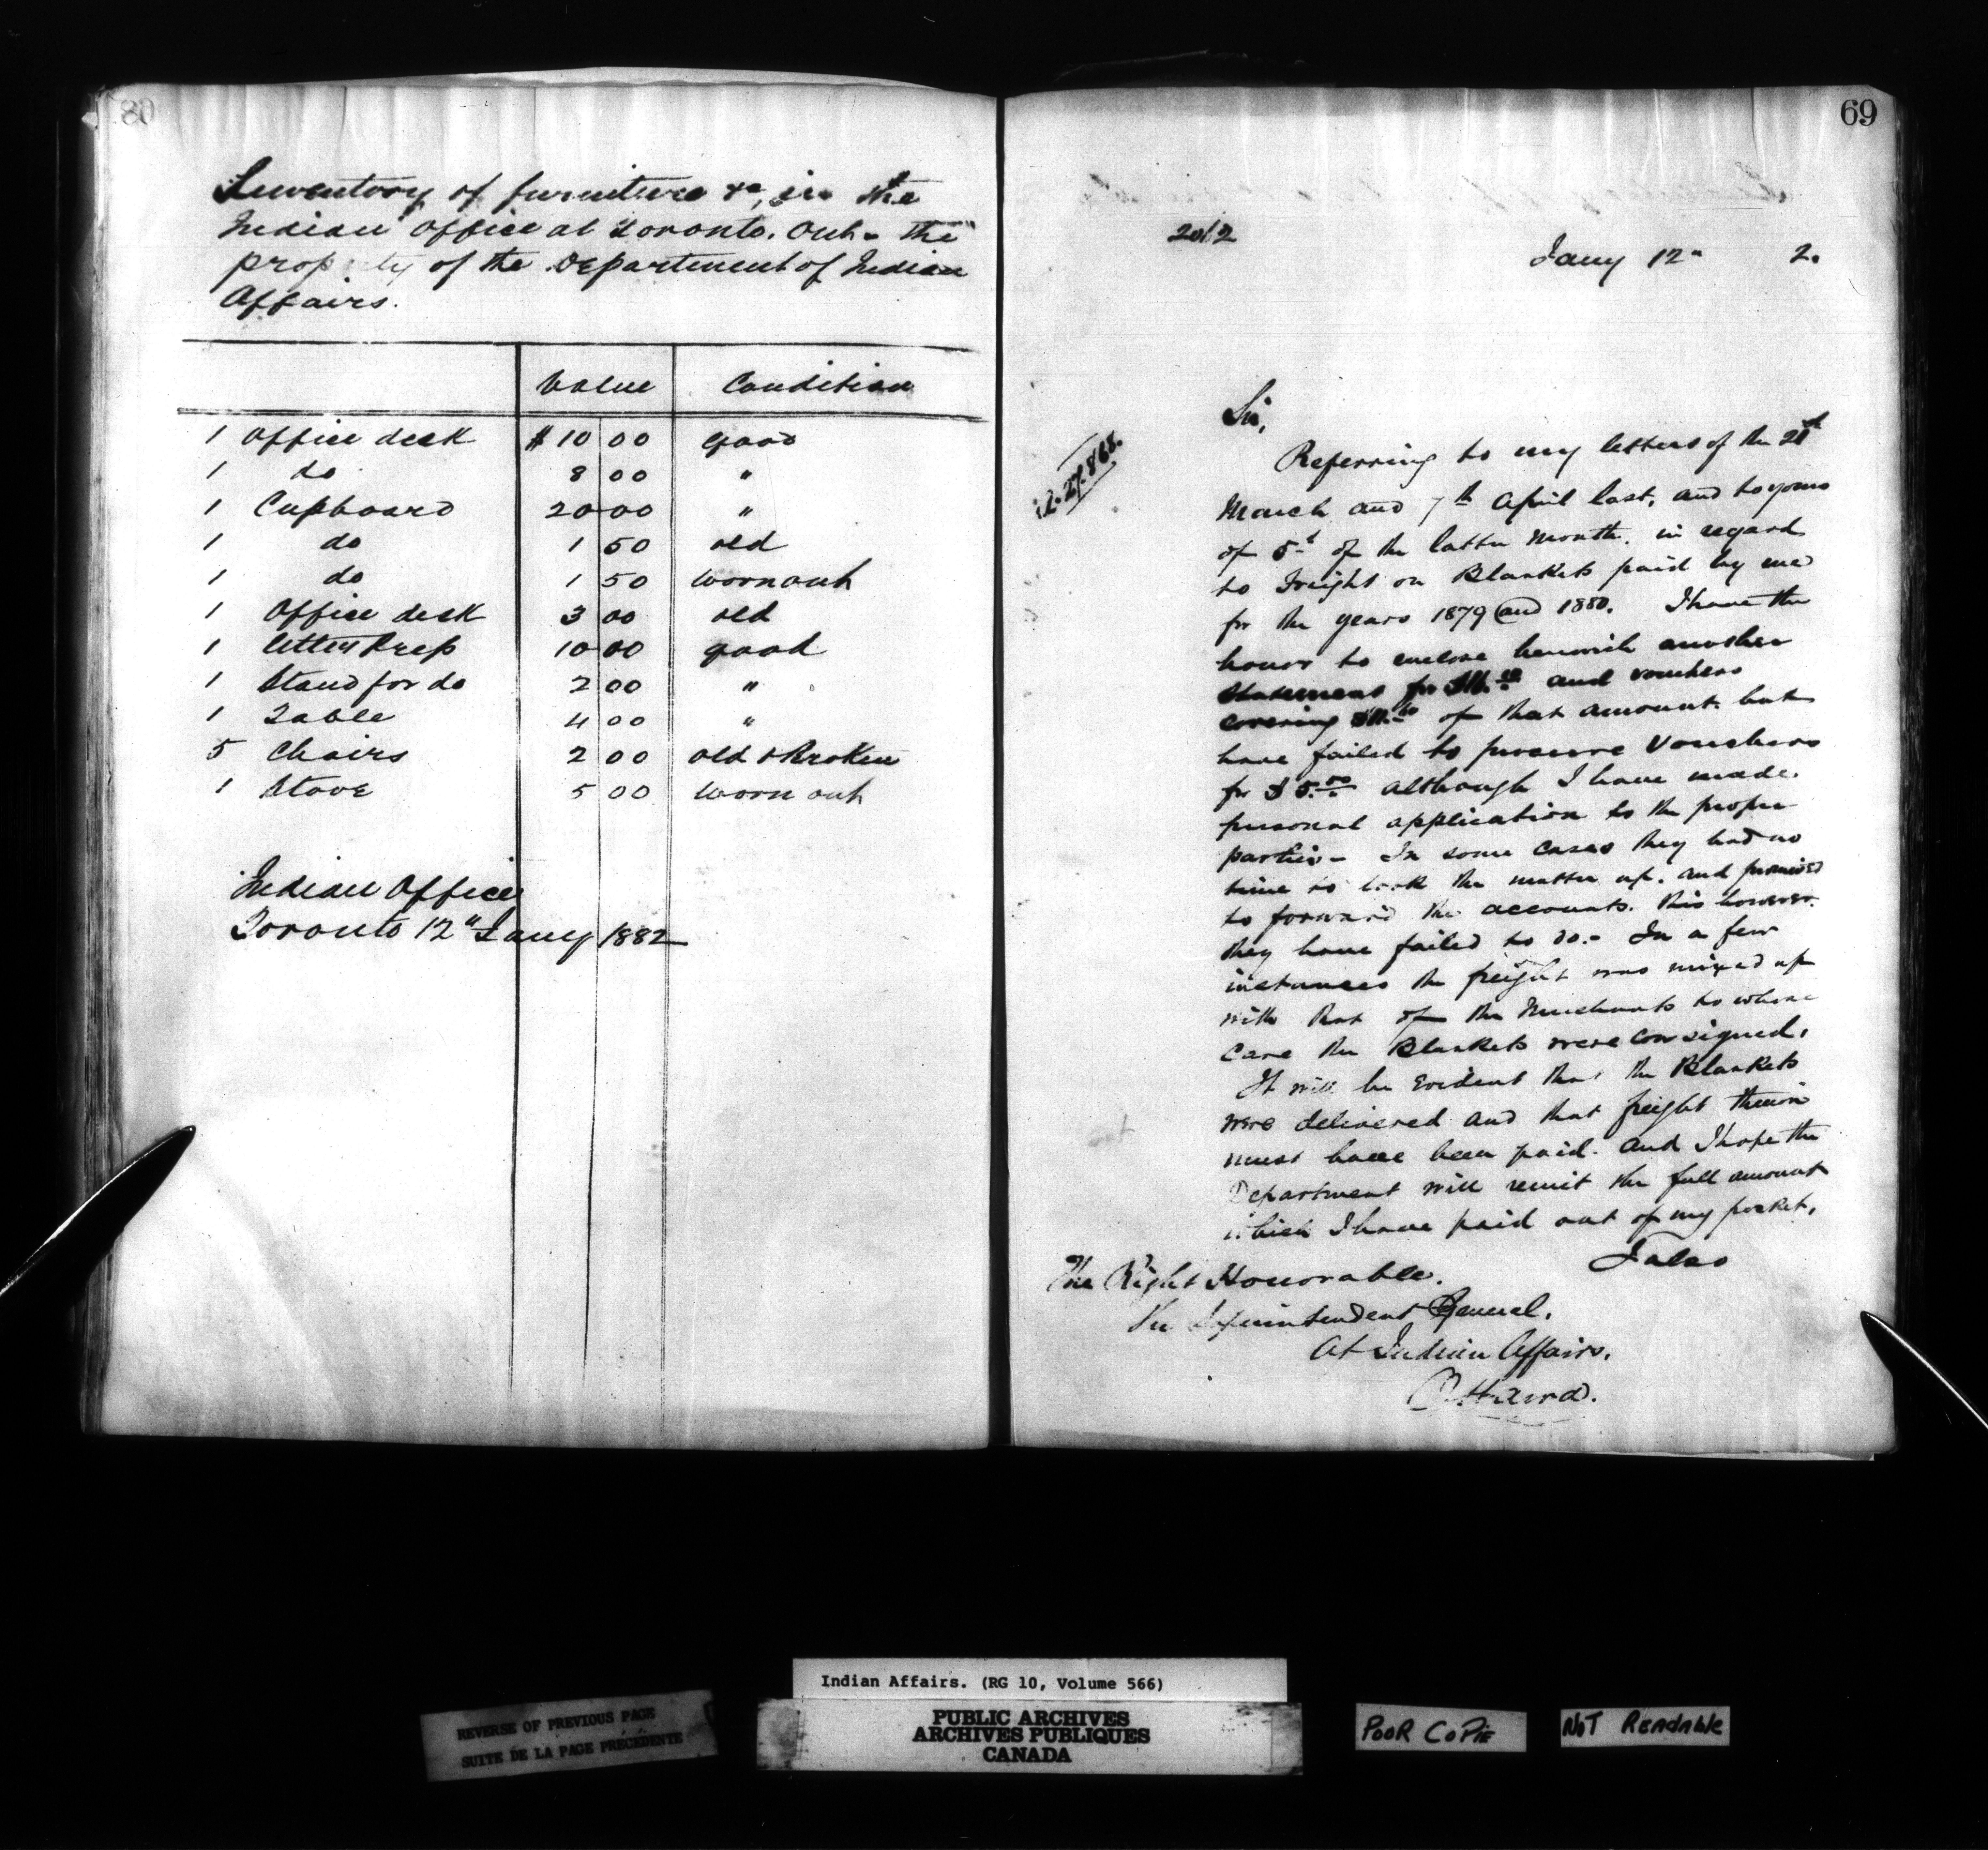 80
Inventory of furniture &c, in the
Indian Office at Toronto. Ont. the
property of the Department of Indian
Affairs.
Value Condition
1 Office desk $10 00 good
1 do 8 00 "
1 Cupboard 20 00 "
1 do 1 50 old
1 do 1 50 worn out
1 Office desk 3 00 old
1 letter Press 10 00 good
1 Stand for do 2 00 "
1 Table 4 00 "
5 Chairs 2 00 old & Broken
1 Stove 5 00 worn out
Indian Office
Toronto 12" Jany 1882
69
2012
Jany 12" 2.
Sir,
Referring to my letters of the
March and 7th April last, and to yours
of 5th of the latter month, in regard
to Freight on Blankets paid by me
for the years 1879 and 1880. I have the
honor to enclose herewith another
statement for and vouchers
covering of that amount. but
have failed to procure Vouchers
for $5.00 although I have made
personal application to the proper
parties - In some cases they had no
time to look the matter up. and promised
to forward the accounts. this however
they have failed to do. - In a few
instances the freight was mixed up
with that of the Merchants to whose
Care the Blankets were consigned.
It will be Evident that the Blankets
were delivered and that freight thereon
must have been paid. and I hope the
Department will remit the full amount
which I have paid out of my pocket.
I also
The Right Honorable.
The Superintendent General.
At Indian Affairs.
Ottawa.
Indian Affairs. (RG 10, Volume 566)
REVERSE OF PREVIOUS PAGE
SUITE DE LA PAGE PRÉCÉDENTE
PUBLIC ARCHIVES
ARCHIVES PUBLIQUES
CANADA
POOR COPIE
NOT READABLE